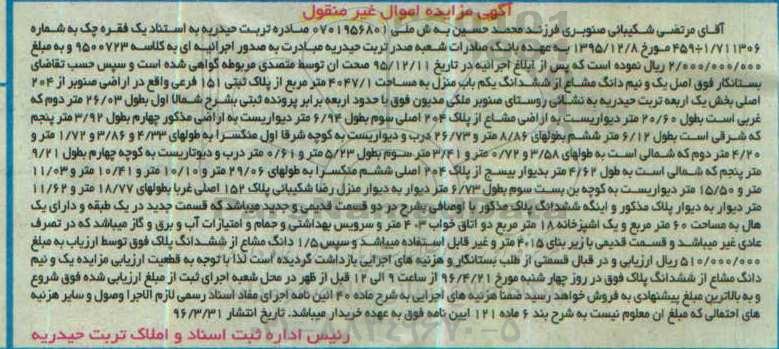 آگهی مزایده اموال غیر منقول
آقای مرتضی شکیبائی صنوبری فرزند محمد حسین به ش ملی ۰۷۰۱۹۵۶۸۰۱ صادره تربت حیدریه به استناد یک فقره چک به شماره
۴۵۹۰۱/۷۱۱۳۰۶ مورخ ۱۳۹۵/۱۲/۸ به عهده بانک صادرات شعبه صدر تربت حیدریه مبادرت به صدور اجرائیه ای به کلاسه ۹۵۰۰۷۲۳ و به مبلغ
۲/۰۰۰/۰۰۰/۰۰۰ ریال نموده است که پس از ابلاغ اجرائیه در تاریخ ۹۵/۱۲/۱۱ صحت ان توسط متصدی مربوطه گواهی شده است و سپس حسب تقاضای
بستانکار فوق اصل یک و نیم دانگ مشاع از ششدانگ یکم باب منزل به مساحت ۴۰۴۷/۱ متر مربع از پلاک ثبتی ۱۵۱ فرعی واقع در اراضی صنوبر از ۲۰۴
اصلی بخش یک اربعه تربت حیدریه به نشانی روستای صنوبر ملکی مدیون فوق با حدود اربعه برابر پرونده ثبتی بشرح شمالا اول بطول ۲۶/۰۳ متر دوم که
غربی است بطول ۲۰/۶۰ متر دیواریست به اراضی مشاع از پلاک ۲۰۴ اصلی سوم بطول ۶/۹۴ متر دیواریست به اراضی مذکور چهارم بطول ۳/۹۲ متر پنجم
که شرقی است بطول ۶/۱۲ متر ششم بطولهای ۸/۸۶ متر و ۲۶/۷۳ درب و دیواریست به کوچه شرقا اول منکسرا به طولهای ۴/۳۳ و ۳/۸۶ و ۱/۷۲ متر و
۴/۲۰ متر دوم که شمالی است به طولهای ۳/۵۸ و ۰/۷۲ متر و ۳/۴۱ متر سوم بطول ۵/۲۳ متر و ۰/۶۱ متر درب و دیوتاریست به کوچه چهارم بطول ۹/۲۱
متر پنجم که شمالی است به طول ۴/۶۲ متر بدیوار بیسچ از پلاک ۲۰۴ اصلی ششم منکسرا به طولهای ۲۹/۰۶ متر و ۱۰/۱۰ متر و ۱۰/۴۱ متر و ۱۱/۰۳
متر و ۱۵/۵۰ متر دیواریست به کوچه بن بست سوم بطول ۶/۷۳ متر دیوار به دیوار منزل رضا شکیبائی پلاک ۱۵۲ اصلی غربا بطولهای ۱۸/۷۷ متر و ۱۱/۶۲
متر دیوار به دیوار پلاک مذکور و اینکه ششدانگ پلاک مذکور با اوصافی بشرح در دو قسمت قدیمی و جدید میباشد که قسمت جدید در یک طبقه و دارای یک
هال به مساحت ۶۰ متر مربع و یک اشپزخانه ۱۸ متر مربع دو اتاق خواب ۳۰۴ متر و سرویس بهداشتی و حمام و امتیازات آب و برق و گاز میباشد که در تصرف
عادی غیر میباشد و قسمت قدیمی با زیر بنای ۴۰۱۵ متر و غیر قابل استفاده میباشد و سپس ۱/۵ دانگ مشاع از ششدانگ پلاک فوق توسط ارزیاب به مبلغ
۵۱۰/۰۰۰/۰۰۰ ریال ارزیابی و در قبال قسمتی از طلب بستانکار و هزینه های اجرایی بازداشت گردیده است لذا با توجه به قطعیت ارزیابی مزایده یک و نیم
دانگ مشاع از ششدانگ پلاک فوق در روز چهار شنبه مورخ ۹۶/۴/۲۱ از ساعت ۹ الی ۱۲ قبل از ظهر در محل شعبه اجرای ثبت از مبلغ ارزیابی شده فوق شروع
و به بالاترین مبلغ پیشنهادی به فروش خواهد رسید ضمنا هزینه های اجرایی به شرح ماده ۴۰ ائین نامه اجرای مفاد اسناد رسمی لازم الاجرا وصول و سایر هزینه
های احتمالی که مبلغ ان معلوم نیست به شرح بند ۶ ماده ۱۲۱ ایین نامه فوق به عهده خریدار میباشد. تاریخ انتشار ۹۶/۳/۳۱
رئیس اداره ثبت اسناد و املاک تربت حیدریه